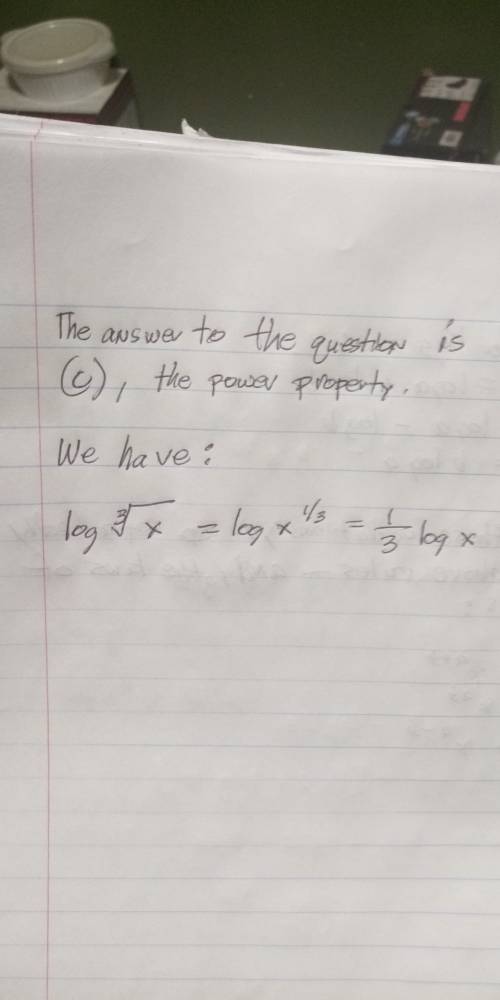 The answer to the question is
(c), the power property.
We have:
log ∛x = log x^1/3 = 1/3 log x